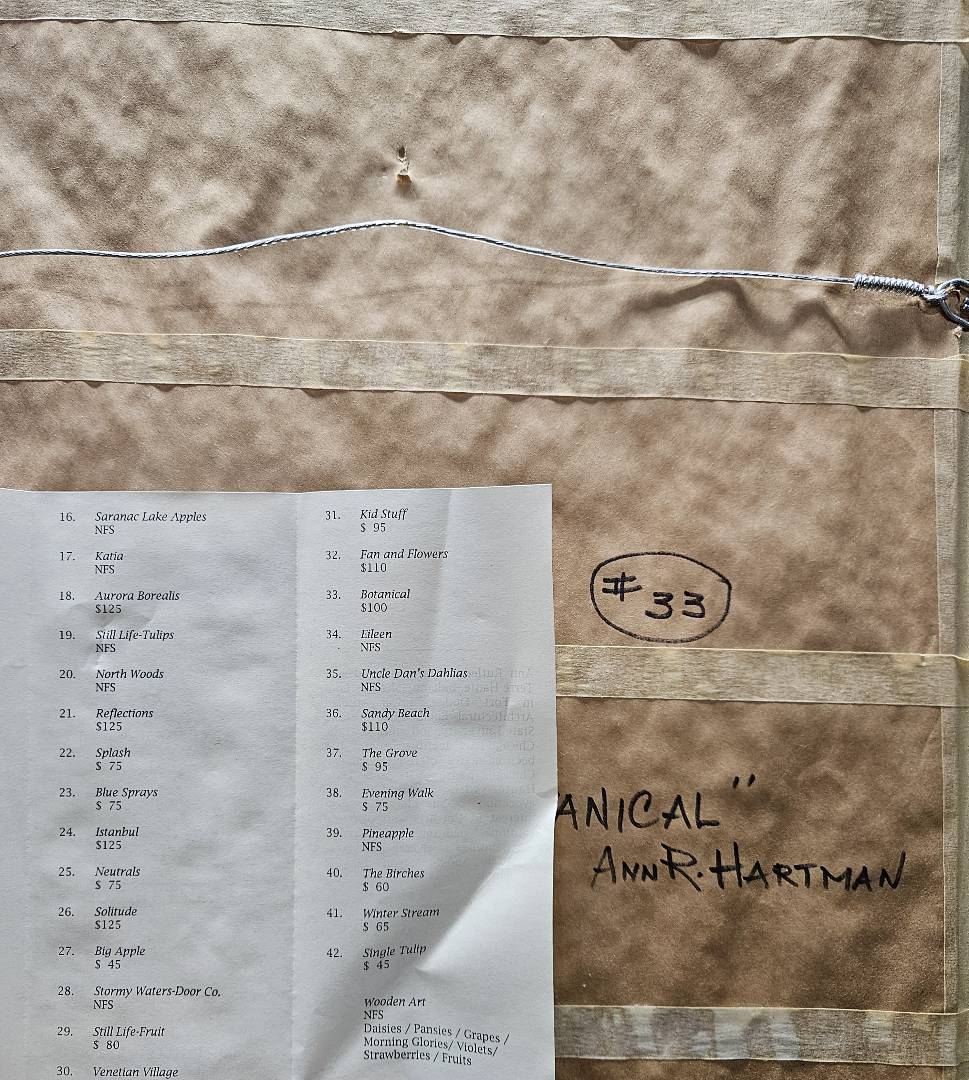 16. Saranac Lake Apples
NFS
17. Katia
NFS
18. Aurora Borealis
$125
19. Still Life-Tulips
NFS
20. North Woods
NFS
21. Reflections
$125
22. Splash
$ 75
23. Blue Sprays
$ 75
24. Istanbul
$125
25. Neutrals
$ 75
26. Solitude
$125
27. Big Apple
$ 45
28. Stormy Waters-Door Co.
NFS
29. Still Life-Fruit
$ 80
30. Venetian Village
31. Kid Stuff
$ 95
32. Fan and Flowers
$110
33. Botanical
$100
34. Eileen
NFS
35. Uncle Dan's Dahlias
NFS
36. Sandy Beach
$110
37. The Grove
$ 95
38. Evening Walk
$ 75
39. Pineapple
NFS
40. The Birches
$ 60
41. Winter Stream
$ 65
42. Single Tulip
$ 45
Wooden Art
NFS
Daisies / Pansies / Grapes /
Morning Glories/ Violets/
Strawberries / Fruits
#33
ANICAL"
ANN R. HARTMAN